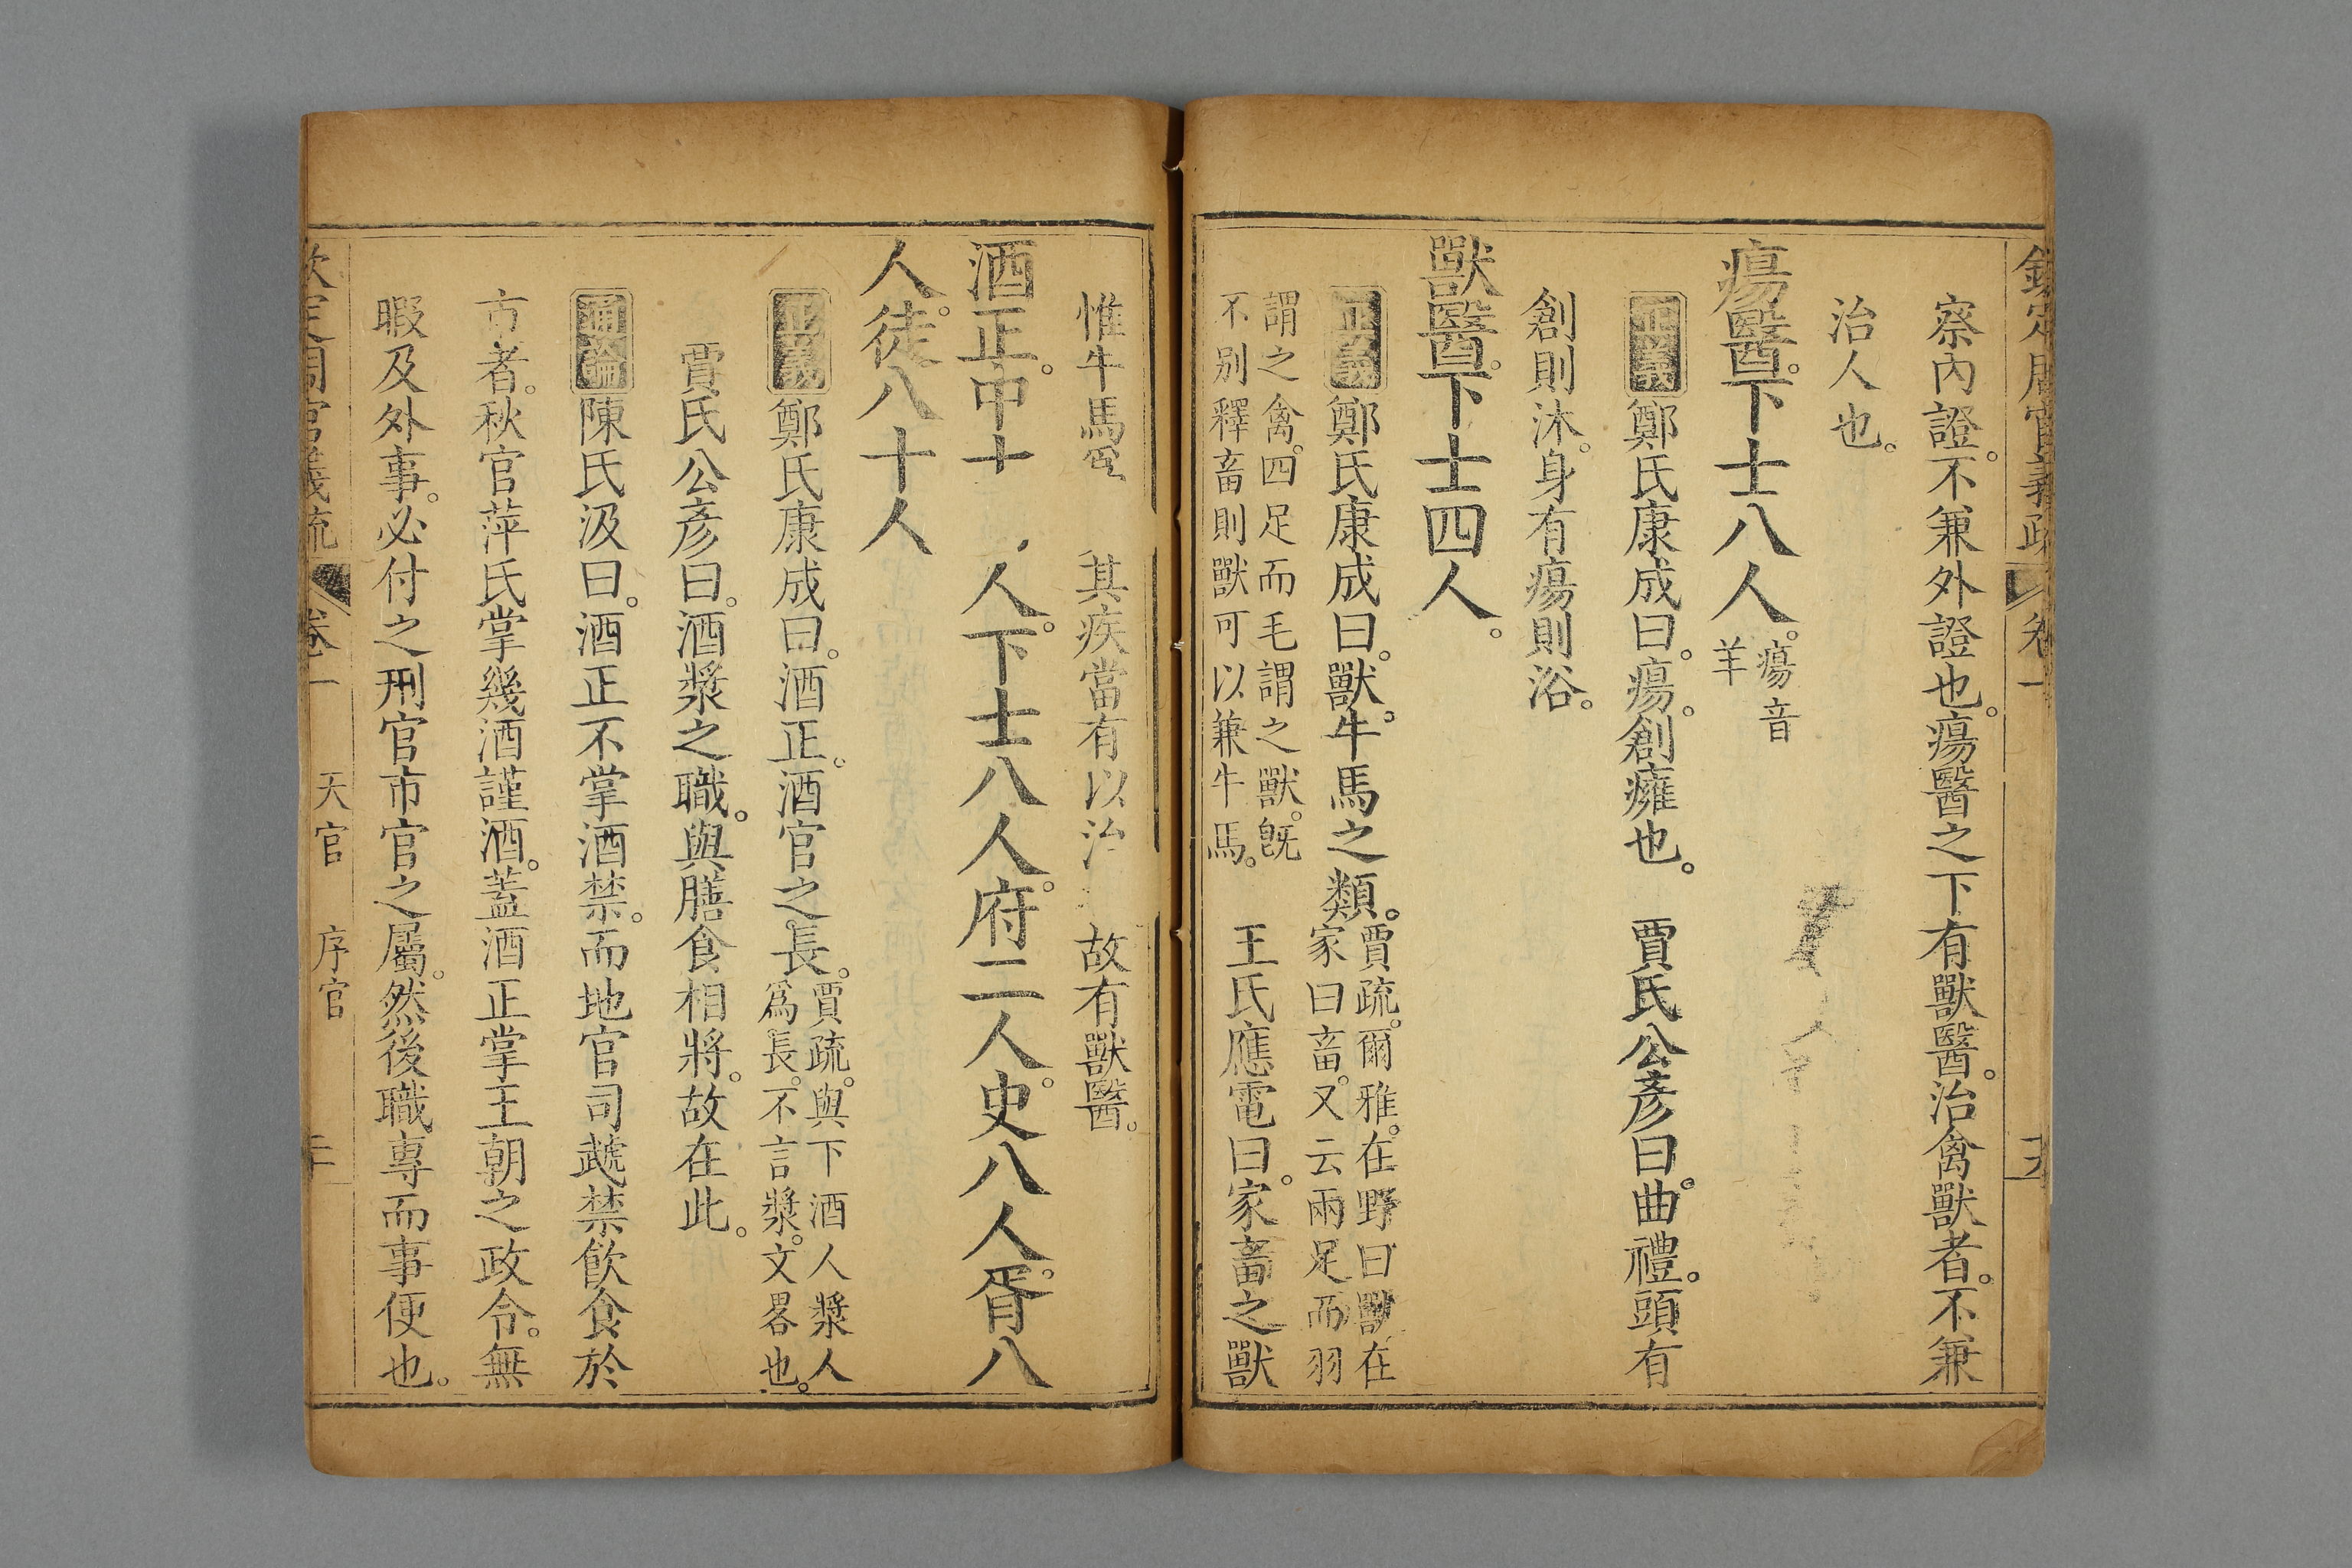 欽定周官義疏 卷一
察內證。不兼外證也。瘍醫之下有獸醫。治禽獸者。不兼
治人也。
瘍醫。下士八人。瘍音
羊
正義鄭氏康成曰。瘍。創癰也。 賈氏公彥曰。曲禮。頭有
創則沐。身有瘍則浴。
獸醫。下士四人。
正義鄭氏康成曰。獸。牛馬之類。賈疏。爾雅。在野曰獸在
家曰畜。又云兩足而羽
謂之禽。四足而毛謂之獸。旣
不別釋畜則獸可以兼牛馬。 王氏應電曰。家畜之獸
惟牛馬 其疾當有以治 故有獸醫。
酒正。中士 人。下士八人。府二人。史八人。胥八
人。徒八十人
正義鄭氏康成曰。酒正。酒官之長。賈疏。與下酒人漿人
爲長。不言漿。文畧也。
賈氏公彥曰。酒漿之職。與膳食相將。故在此。
通論陳氏汲曰。酒正不掌酒禁。而地官司虣禁飮食於
市者。秋官萍氏掌幾酒謹酒。蓋酒正掌王朝之政令。無
暇及外事。必付之刑官市官之屬。然後職專而事便也。
欽定周官義疏 卷一 天官 序官